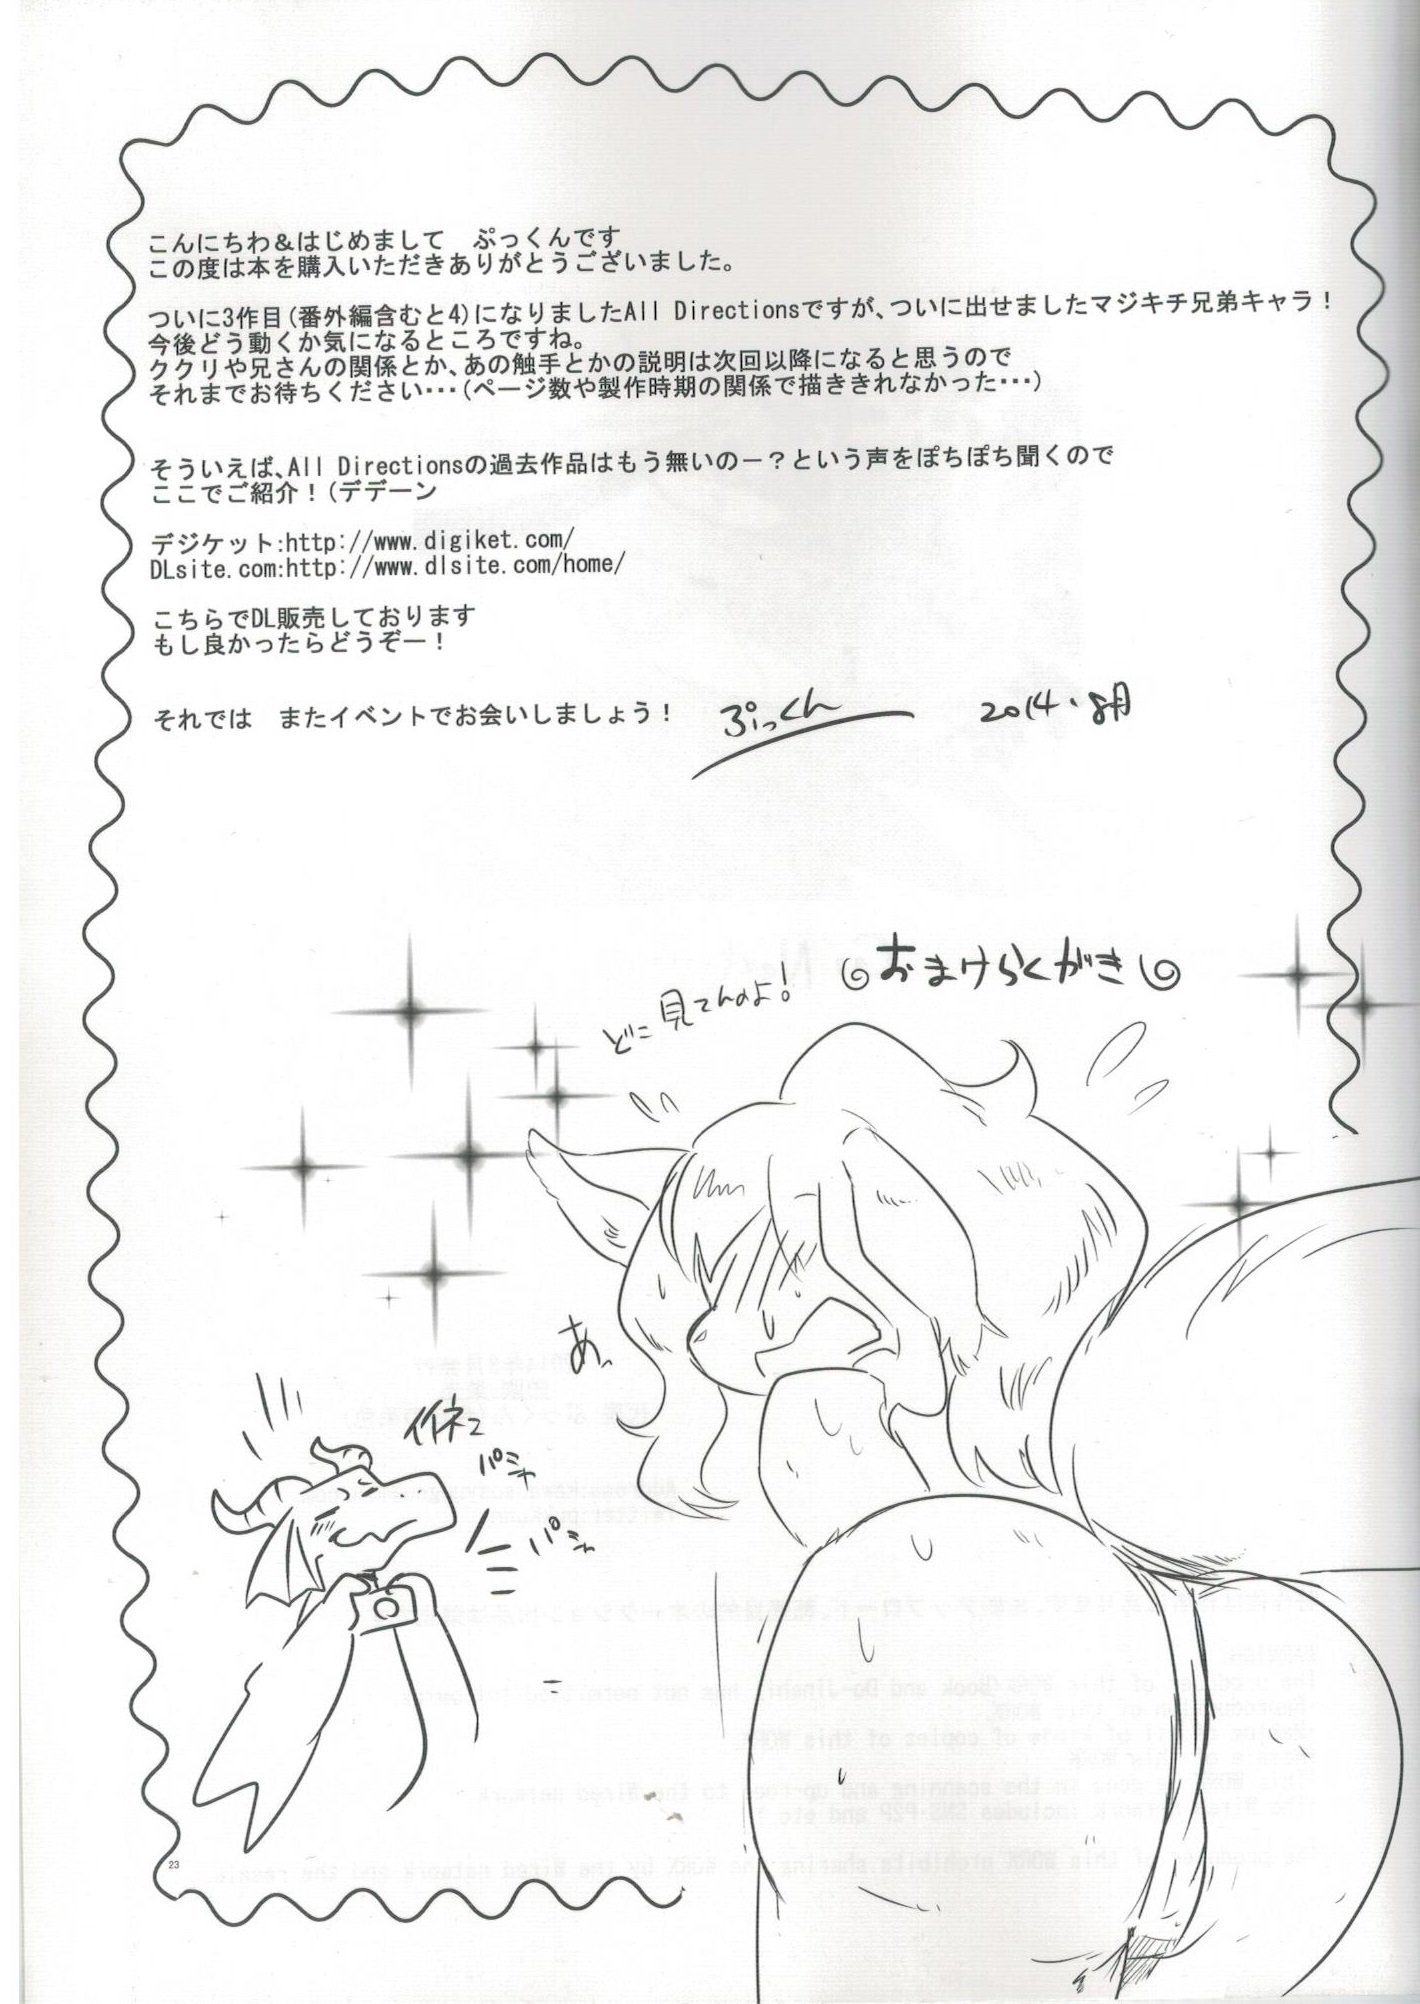 こんにちわ＆はじめまして　ぷっくんです
この度は本を購入いただきありがとうございました。
ついに3作目(番外編含むと4)になりましたAll Directionsですが、ついに出せましたマジキチ兄弟キャラ！
今後どう動くか気になるところですね。
ククリや兄さんの関係とか、あの触手とかの説明は次回以降になると思うので
それまでお待ちください･･･(ページ数や製作時期の関係で描ききれなかった･･･)
そういえば、All Directionsの過去作品はもう無いのー？という声をぽちぽち聞くので
ここでご紹介！(デデーン
デジケット:http://www.digiket.com/
DLsite.com:http://www.dlsite.com/home/
こちらでDL販売しております
もし良かったらどうぞー！
それでは　またイベントでお会いしましょう！　ぷっくん　2014.8月
おまけらくがき
どこ見てんのよ！
あっ
イイネェ
パシャ
パシャ
23